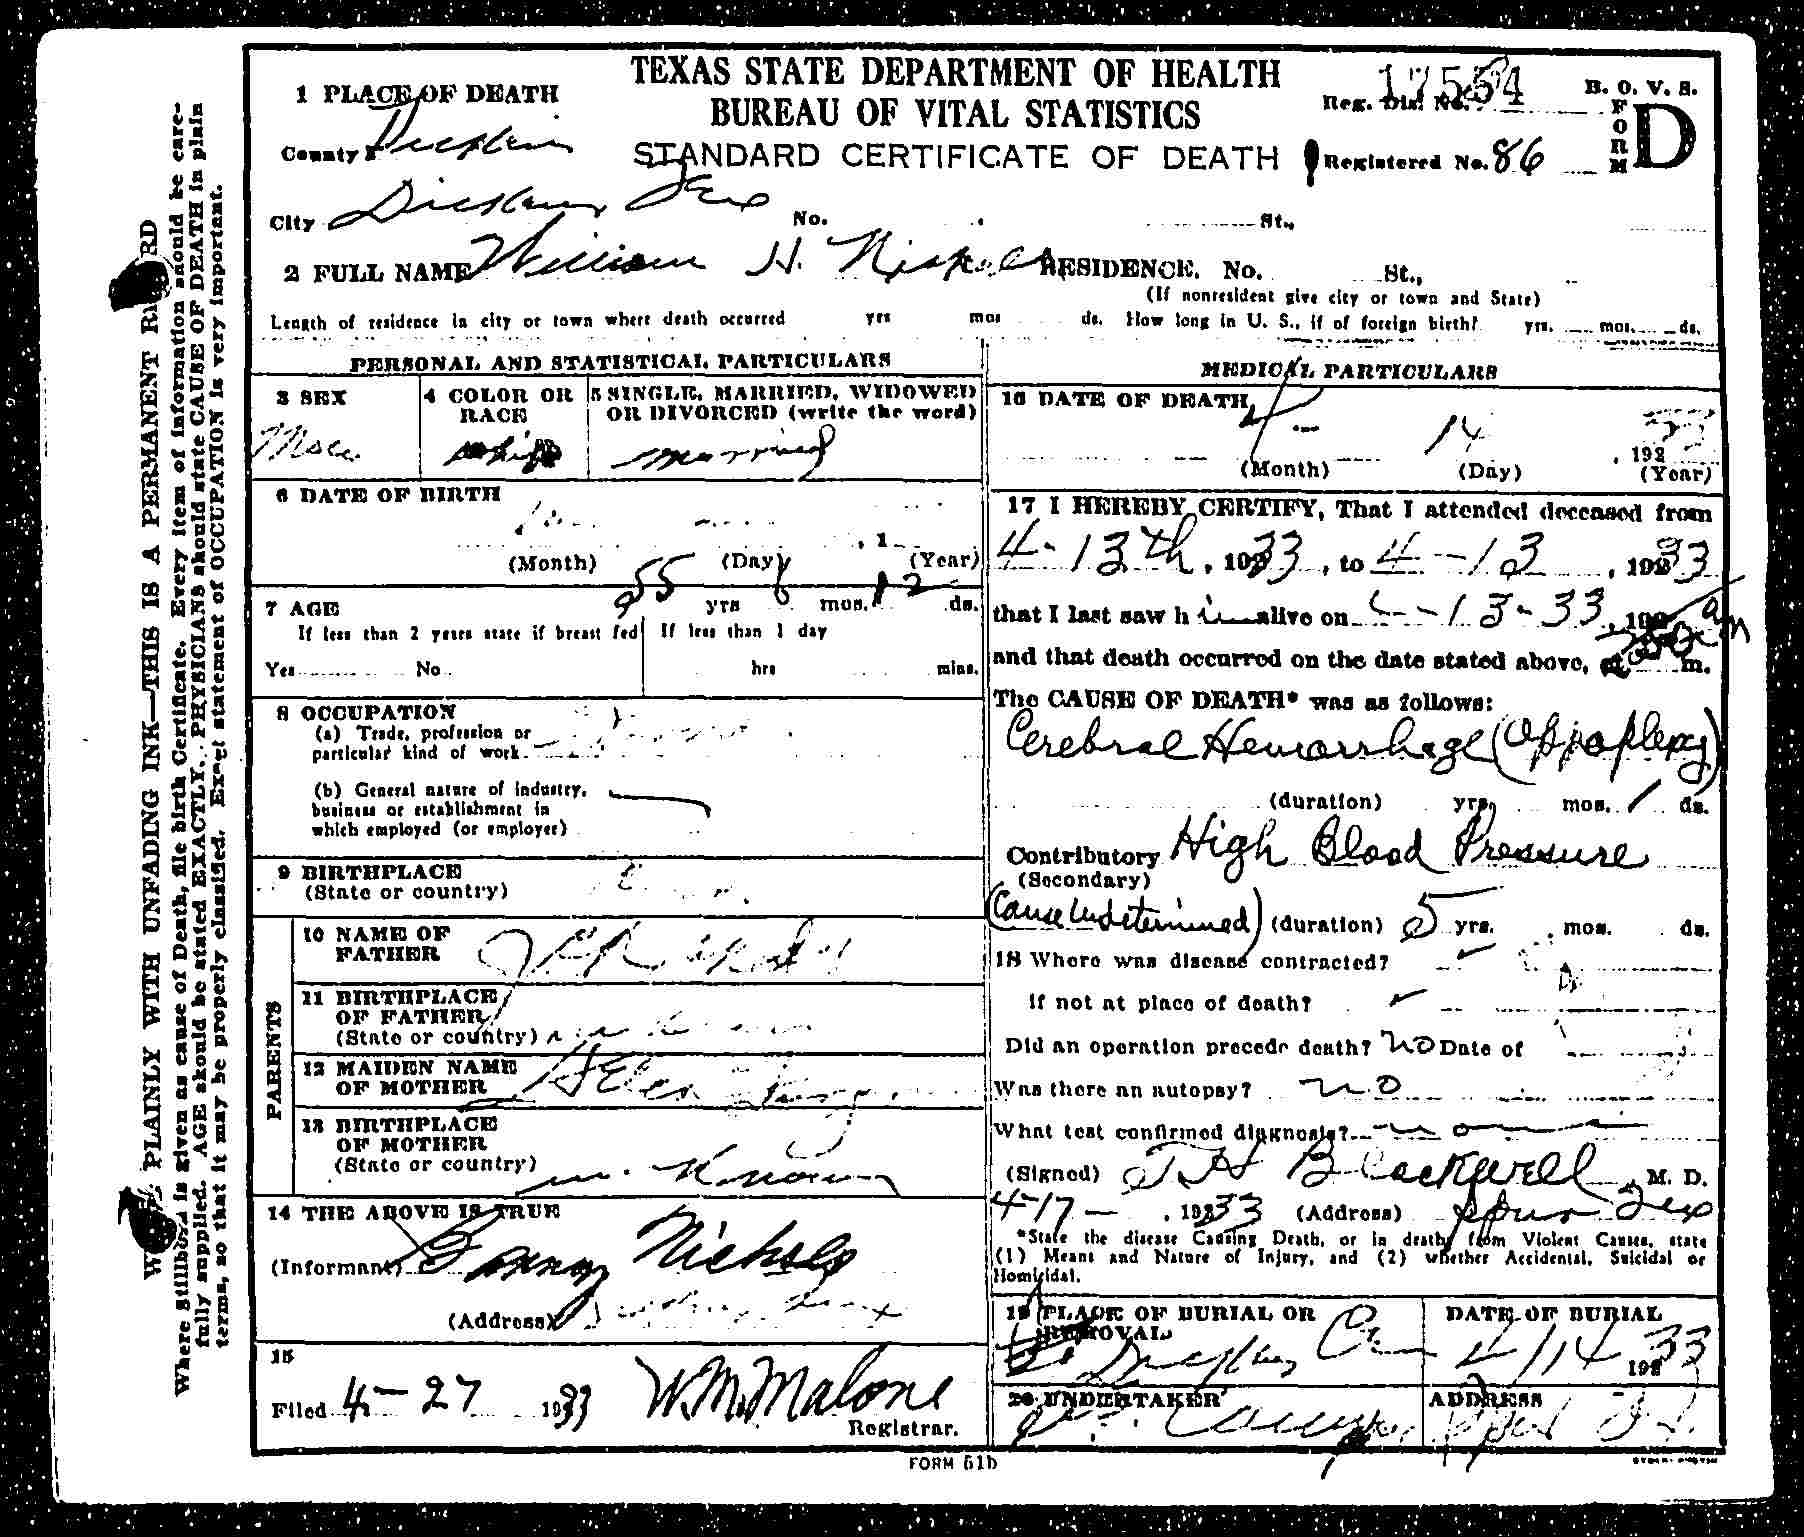 TEXAS STATE DEPARTMENT OF HEALTH
BUREAU OF VITAL STATISTICS
STANDARD CERTIFICATE OF DEATH
Reg. Dis. No.
B. O. V. S.
FORM D
Registered No. 86
1 PLACE OF DEATH
County Dickens
City Dickens Tex No. St.,
2 FULL NAME William H. Nickels RESIDENCE. No. St.,
(If nonresident give city or town and State)
Length of residence in city or town where death occurred yrs mos ds. How long in U. S., if of foreign birth? yrs. mos. ds.
PERSONAL AND STATISTICAL PARTICULARS
3 SEX
Male
4 COLOR OR RACE
white
5 SINGLE, MARRIED, WIDOWED
OR DIVORCED (write the word)
married
6 DATE OF BIRTH
, 1
(Month) (Day) (Year)
7 AGE 55 yrs 8 mos. 12 ds.
If less than 2 years state if breast fed
Yes No
If less than 1 day
hrs mins.
8 OCCUPATION
(a) Trade, profession or
particular kind of work
(b) General nature of industry,
business or establishment in
which employed (or employer)
9 BIRTHPLACE
(State or country)
PARENTS
10 NAME OF
FATHER
11 BIRTHPLACE
OF FATHER
(State or country)
12 MAIDEN NAME
OF MOTHER
13 BIRTHPLACE
OF MOTHER
(State or country)
14 THE ABOVE IS TRUE
(Informant) Nichols
(Address)
15
Filed 4-27 1933 W.M. Malone
Registrar.
MEDICAL PARTICULARS
16 DATE OF DEATH
4 - 14 , 192 33
(Month) (Day) (Year)
17 I HEREBY CERTIFY, That I attended deceased from
4-13th, 1933, to 4-13, 1933
that I last saw him alive on 4-13-33, 192
and that death occurred on the date stated above, at m.
The CAUSE OF DEATH* was as follows:
Cerebral Hemorrhage (Appoplexy)
(duration) yrs. mos. 1 ds.
Contributory High Blood Pressure
(Secondary)
(Cause Undetermined) (duration) 5 yrs. mos. ds.
18 Where was disease contracted?
if not at place of death?
Did an operation precede death? No Date of
Was there an autopsy? no
What test confirmed diagnosis?
(Signed) T H Blackwell, M. D.
4-17- , 1933 (Address) Spur Tex
*State the disease Causing Death, or in deaths from Violent Causes, state
(1) Means and Nature of Injury, and (2) whether Accidental, Suicidal or
Homicidal.
19 PLACE OF BURIAL OR
REMOVAL
Dickens
DATE OF BURIAL
4/14 1933
20 UNDERTAKER
ADDRESS
FORM 51b
WRITE PLAINLY WITH UNFADING INK—THIS IS A PERMANENT RECORD
Where Stillborn is given as cause of Death, file birth Certificate. Every item of information should be care-
fully supplied. AGE should be stated EXACTLY. PHYSICIANS should state CAUSE OF DEATH in plain
terms, so that it may be properly classified. Exact statement of OCCUPATION is very important.